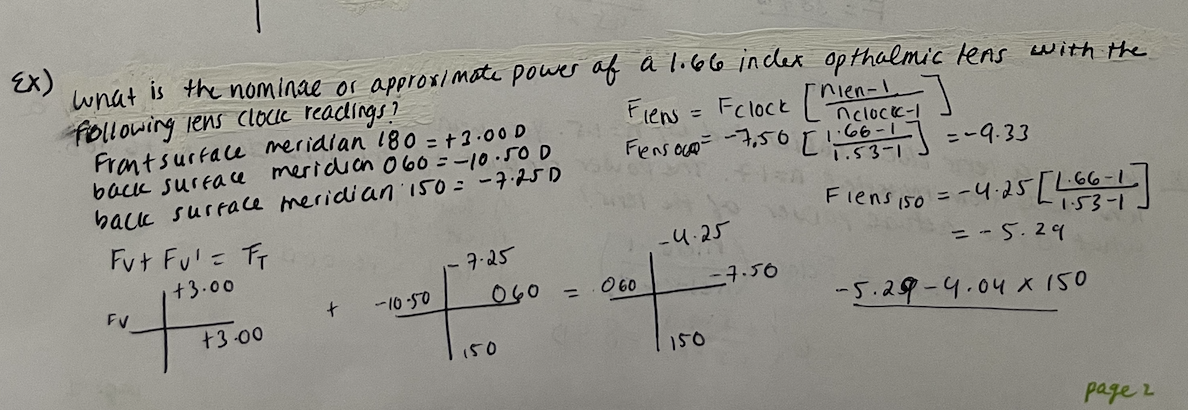 Ex) what is the nominae or approximate power of a 1.66 index opthalmic lens with the
following lens clock readings?
Front surface meridian 180 = +3.00 D
back surface meridian 060 = -10.50 D
back surface meridian 150 = -7.25D
Flens = Fclock [nlen-1 / nclock-1]
Flens 060 = -7.50 [1.66-1 / 1.53-1] = -9.33
Flens 150 = -4.25 [1.66-1 / 1.53-1]
= -5.29
Fv + Fv' = FT
Fv +3.00 +3.00 + -10.50 -7.25 060 150 = 060 -4.25 -7.50 150
-5.29 -4.04 x 150
page 2